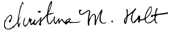 Christina M. Holt